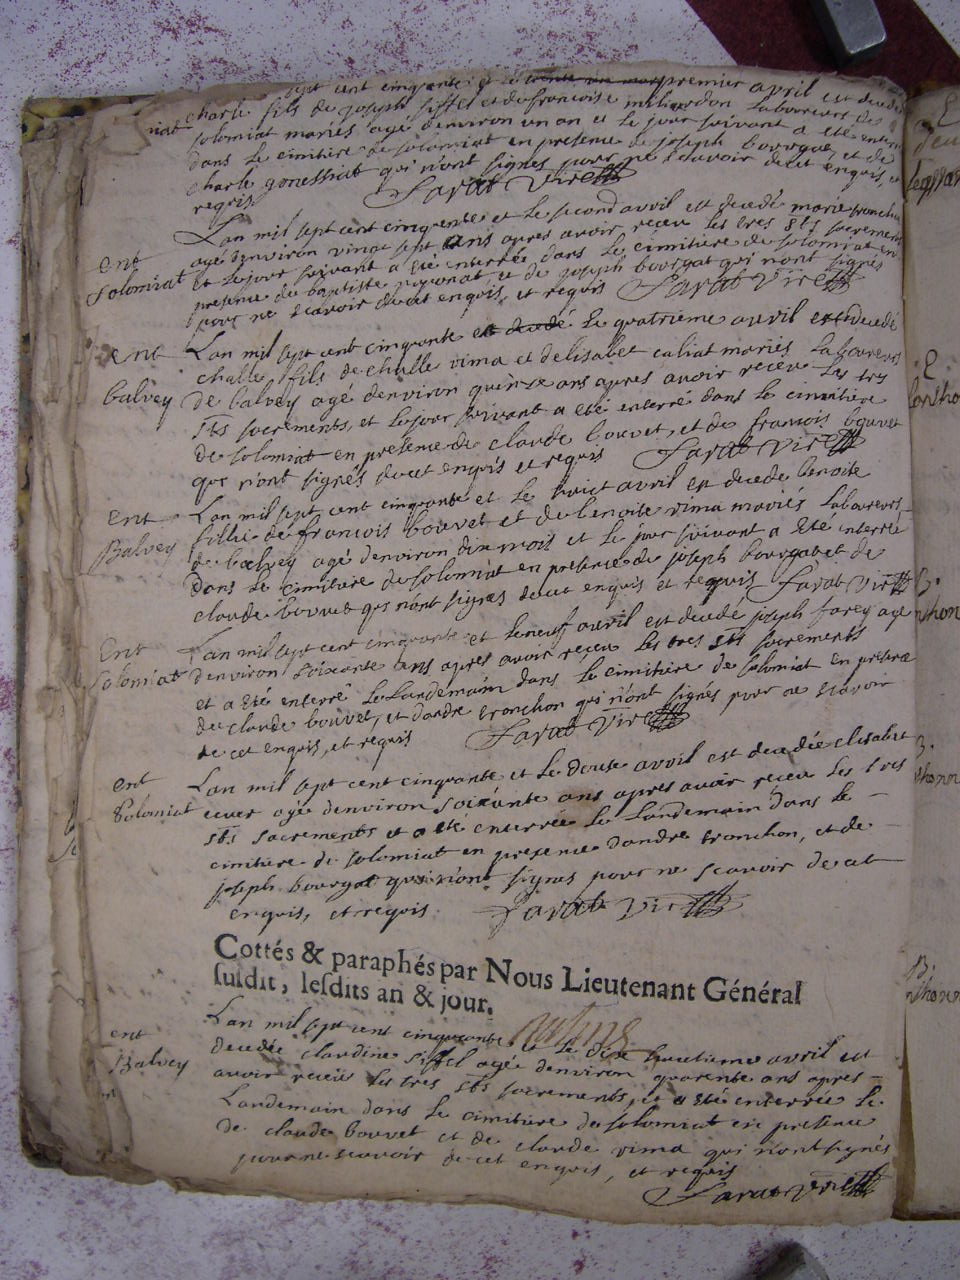 sept cent cinquante et le premier avril est decedé
charle fils de joseph siffel et de francoise Laboureurs de
solomiat mariés agé denviron un an et le jour suivant a eté enterré
dans le cimitiere de solomiat en presence de joseph bourgat et de
charle gonessiat qui n'ont signés pour ne scavoir de cet enquis, et
requis Sarat Vire
ent Lan mil sept cent cinquante et le second avril est decedé marie tronchon
solomiat agé denviron vingt sept ans apres avoir receu les tres sts sacrements
et le jour suivant a eté enterrée dans le cimitiere de solomiat en
presence de baptiste et de joseph bourgat qui n'ont signés
pour ne scavoir de cet enquis, et requis Sarat Vire
ent Lan mil sept cent cinquante et decedé le quatrieme avril est decedé
balvey challe fils de challe vima et delisabet caliat mariés Laboureurs
de balvey agé denviron quinze ans apres avoir receu les tres
sts sacrements, et le jour suivant a eté enterré dans le cimitiere
de solomiat en presence de claude bouvet, et de francois bouvet
qui n'ont signés de cet enquis et requis Sarat Vire
ent Lan mil sept cent cinquante et le huict avril est decedé benoite
Balvey fille de francois bouvet et de benoite vima mariés Laboureurs
de balvey agé denviron dix mois et le jour suivant a eté enterré
dans le cimitiere de solomiat en presence de joseph bourgat et de
claude bouvet qui n'ont signés de cet enquis et requis Sarat Vire
ent Lan mil sept cent cinquante et le neuf avril est decedé joseph farey agé
solomiat denviron soixante ans apres avoir receu les tres sts sacrements
et a eté enterré le Landemain dans le cimitiere de solomiat en presence
de claude bouvet, et dandre tronchon qui n'ont signés pour ne scavoir
de cet enquis, et requis Sarat Vire
ent Lan mil sept cent cinquante et le douse avril est decedée elisabet
Solomiat cuer agée denviron soixante ans apres avoir receu les tres
sts sacrements et a eté enterrée le Landemain dans le
cimitiere de solomiat en presence dandre tronchon, et de
joseph bourgat qui n'ont signés pour ne scavoir de cet
enquis, et requis Sarat Vire
Cottés & paraphés par Nous Lieutenant Général
susdit, lesdits an & jour.
ent Lan mil sept cent cinquante et le dix huictieme avril est
Balvey decedée claudine siffel agé denviron quarente ans apres
avoir receu les tres sts sacrements, et a eté enterrée le
Landemain dans le cimitiere de solomiat en presence
de claude bouvet et de claude vima qui n'ont signés
pour ne scavoir de cet enquis, et requis
Sarat Vire